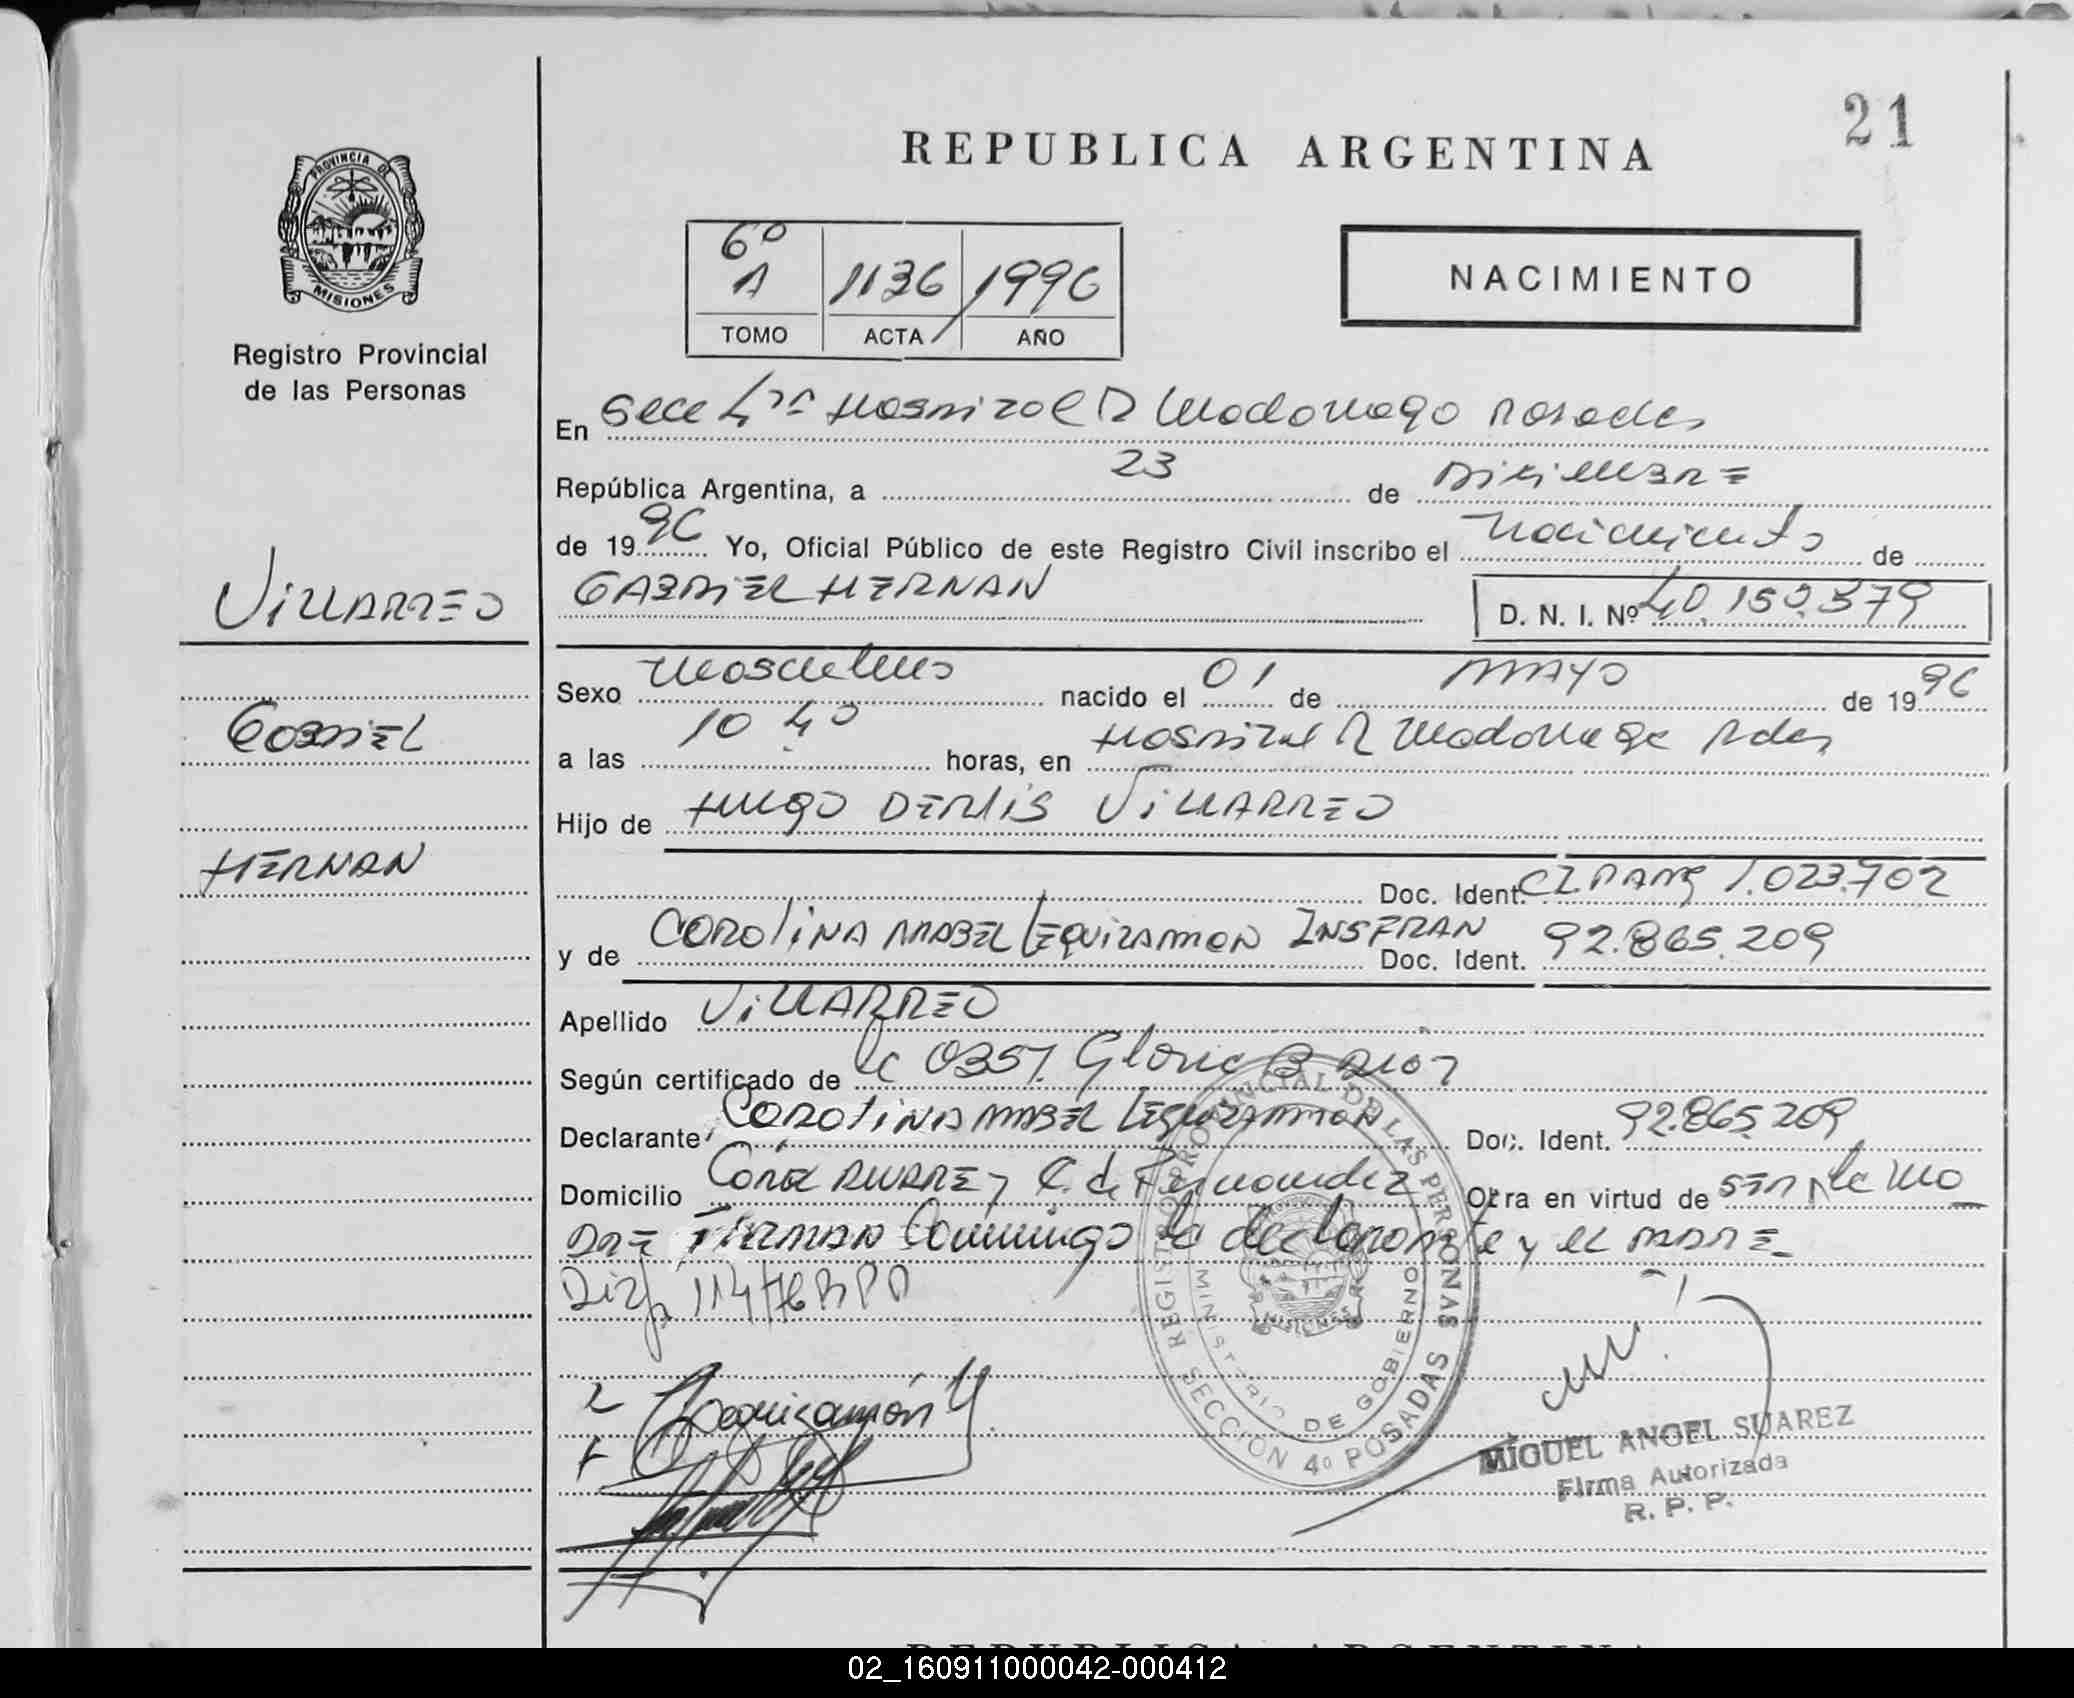 21
REPUBLICA ARGENTINA
PROVINCIA DE
MISIONES
Registro Provincial
de las Personas
6º
A 1136 1996
TOMO ACTA AÑO
NACIMIENTO
En Secc 4ta Hospital R Madariaga Posadas
República Argentina, a 23 de Diciembre
de 1996 Yo, Oficial Público de este Registro Civil inscribo el Nacimiento de
GABRIEL HERNAN D. N. I. Nº 40.150.379
VILLARREO
Sexo Masculino nacido el 01 de MAYO de 1996
GABRIEL
a las 10 40 horas, en Hospital R Madariaga Pdas
Hijo de HUGO DERLIS VILLARREO
HERNAN
Doc. Ident. CI. PARAG 1.023.702
y de CAROLINA MABEL LEGUIZAMON INSFRAN Doc. Ident. 92.865.209
Apellido VILLARREO
Según certificado de 0357. Gloria B
Declarante CAROLINA MABEL LEGUIZAMON Doc. Ident. 92.865.209
Domicilio ALVAREZ C. de Fernandez Otra en virtud de SER la MA
DRE FIRMAN Conmigo la declarante y el PADRE
114/76 RPP
Leguizamón
REGISTRO PROVINCIAL DE LAS PERSONAS
MINISTERIO DE GOBIERNO
MISIONES
SECCION 4º POSADAS
MIGUEL ANGEL SUAREZ
Firma Autorizada
R. P. P.
REPUBLICA ARGENTINA
02_160911000042-000412